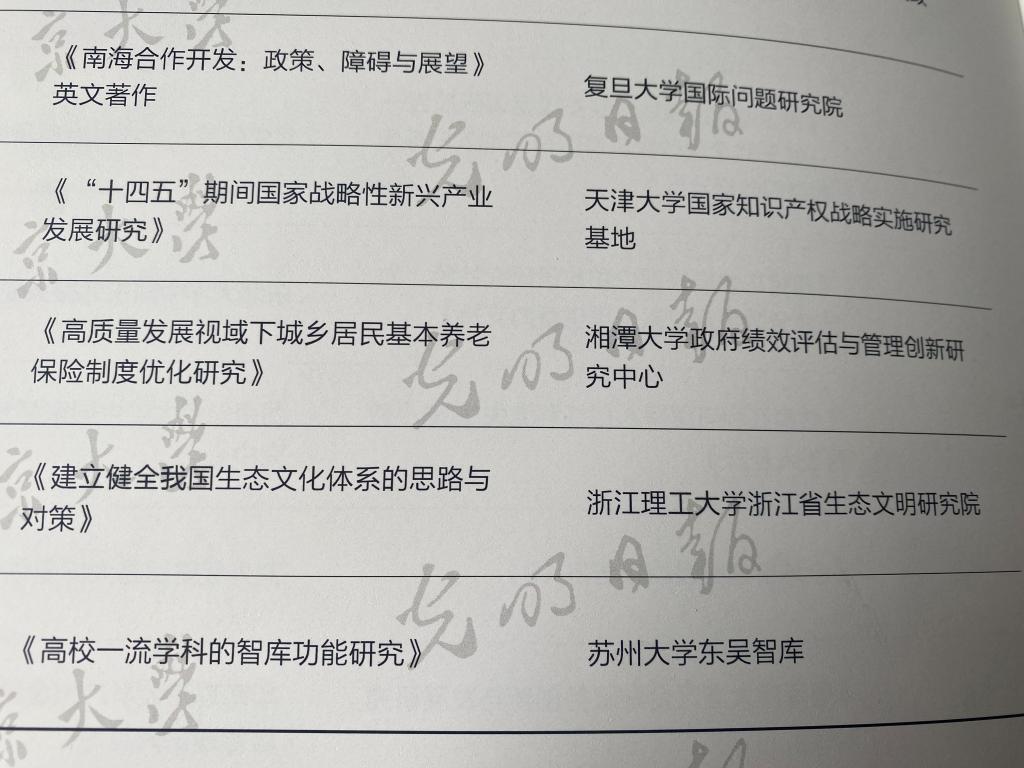 《南海合作开发：政策、障碍与展望》
英文著作
复旦大学国际问题研究院
《“十四五”期间国家战略性新兴产业
发展研究》
天津大学国家知识产权战略实施研究
基地
《高质量发展视域下城乡居民基本养老
保险制度优化研究》
湘潭大学政府绩效评估与管理创新研
究中心
《建立健全我国生态文化体系的思路与
对策》
浙江理工大学浙江省生态文明研究院
《高校一流学科的智库功能研究》
苏州大学东吴智库
京大学
光明日报
京大学
光明日报
京大学
光明日报
京大学